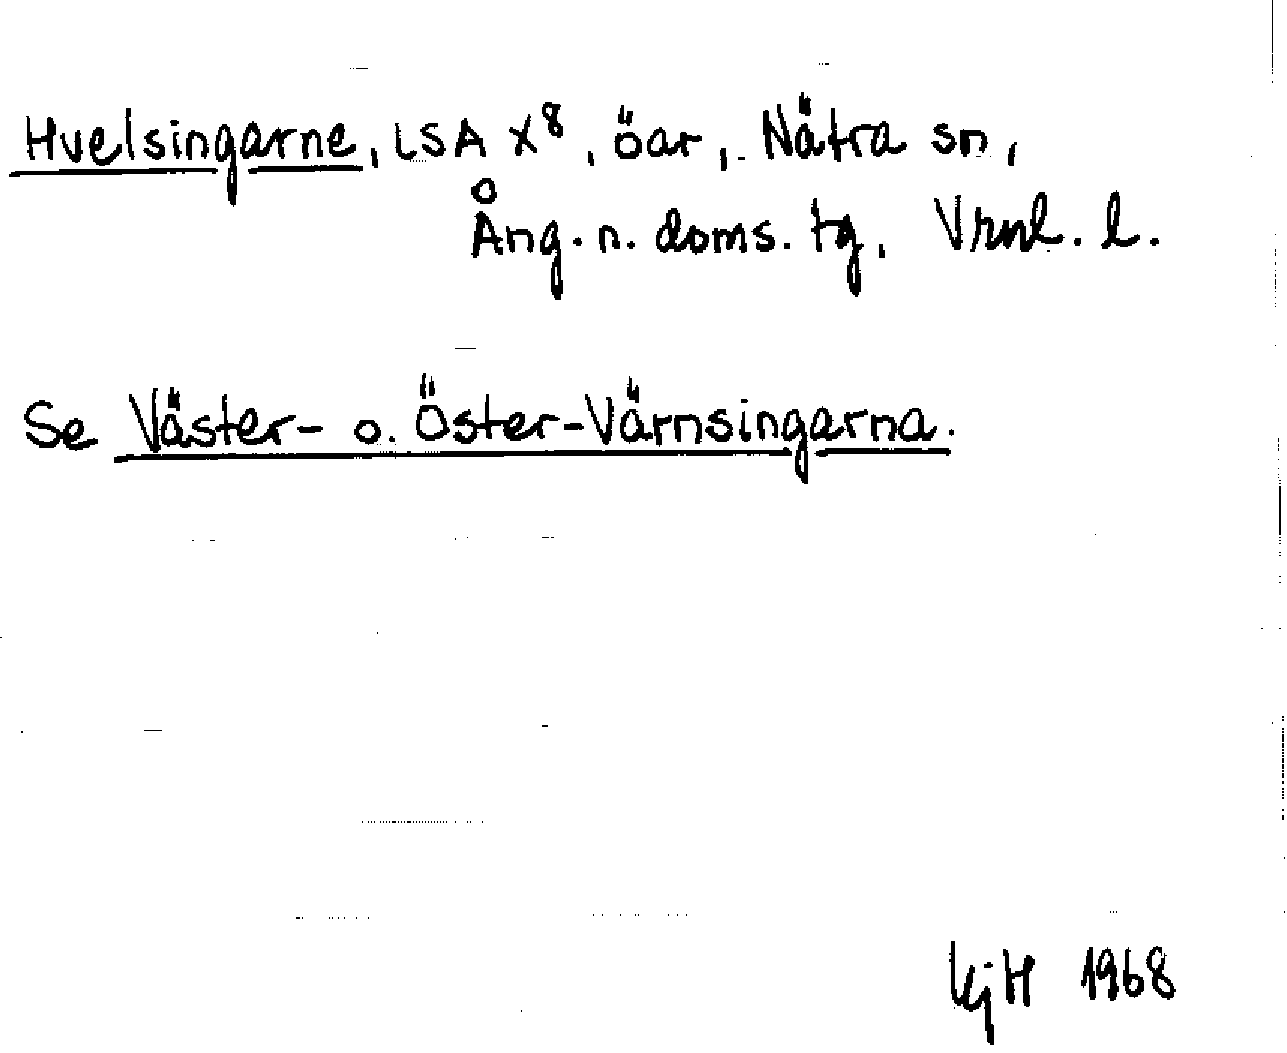 Hvelsingarne, LSA X⁸, öar, Nätra sn,
Ång. n. doms. tg, Vrnl. l.
Se Väster- o. Öster-Värnsingarna.
KjH 1968